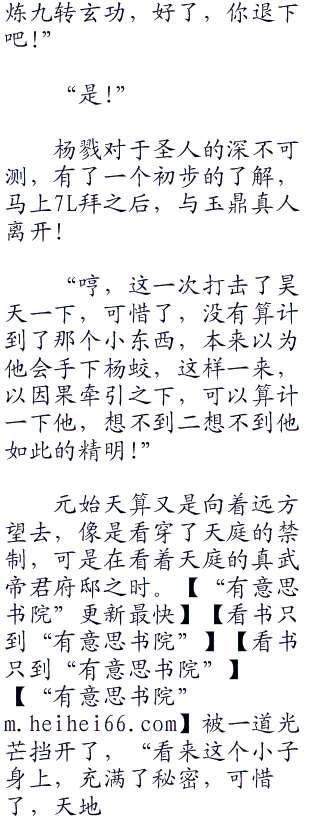 炼九转玄功，好了，你退下
吧！”
“是！”
杨戬对于圣人的深不可
测，有了一个初步的了解，
马上7L拜之后，与玉鼎真人
离开！
“哼，这一次打击了昊
天一下，可惜了，没有算计
到了那个小东西，本来以为
他会手下杨蛟，这样一来，
以因果牵引之下，可以算计
一下他，想不到二想不到他
如此的精明！”
元始天算又是向着远方
望去，像是看穿了天庭的禁
制，可是在看着天庭的真武
帝君府邸之时。【“有意思
书院”更新最快】【看书只
到“有意思书院”】【看书
只到“有意思书院”】
【“有意思书院”
m.heihei66.com】被一道光
芒挡开了，“看来这个小子
身上，充满了秘密，可惜
了，天地